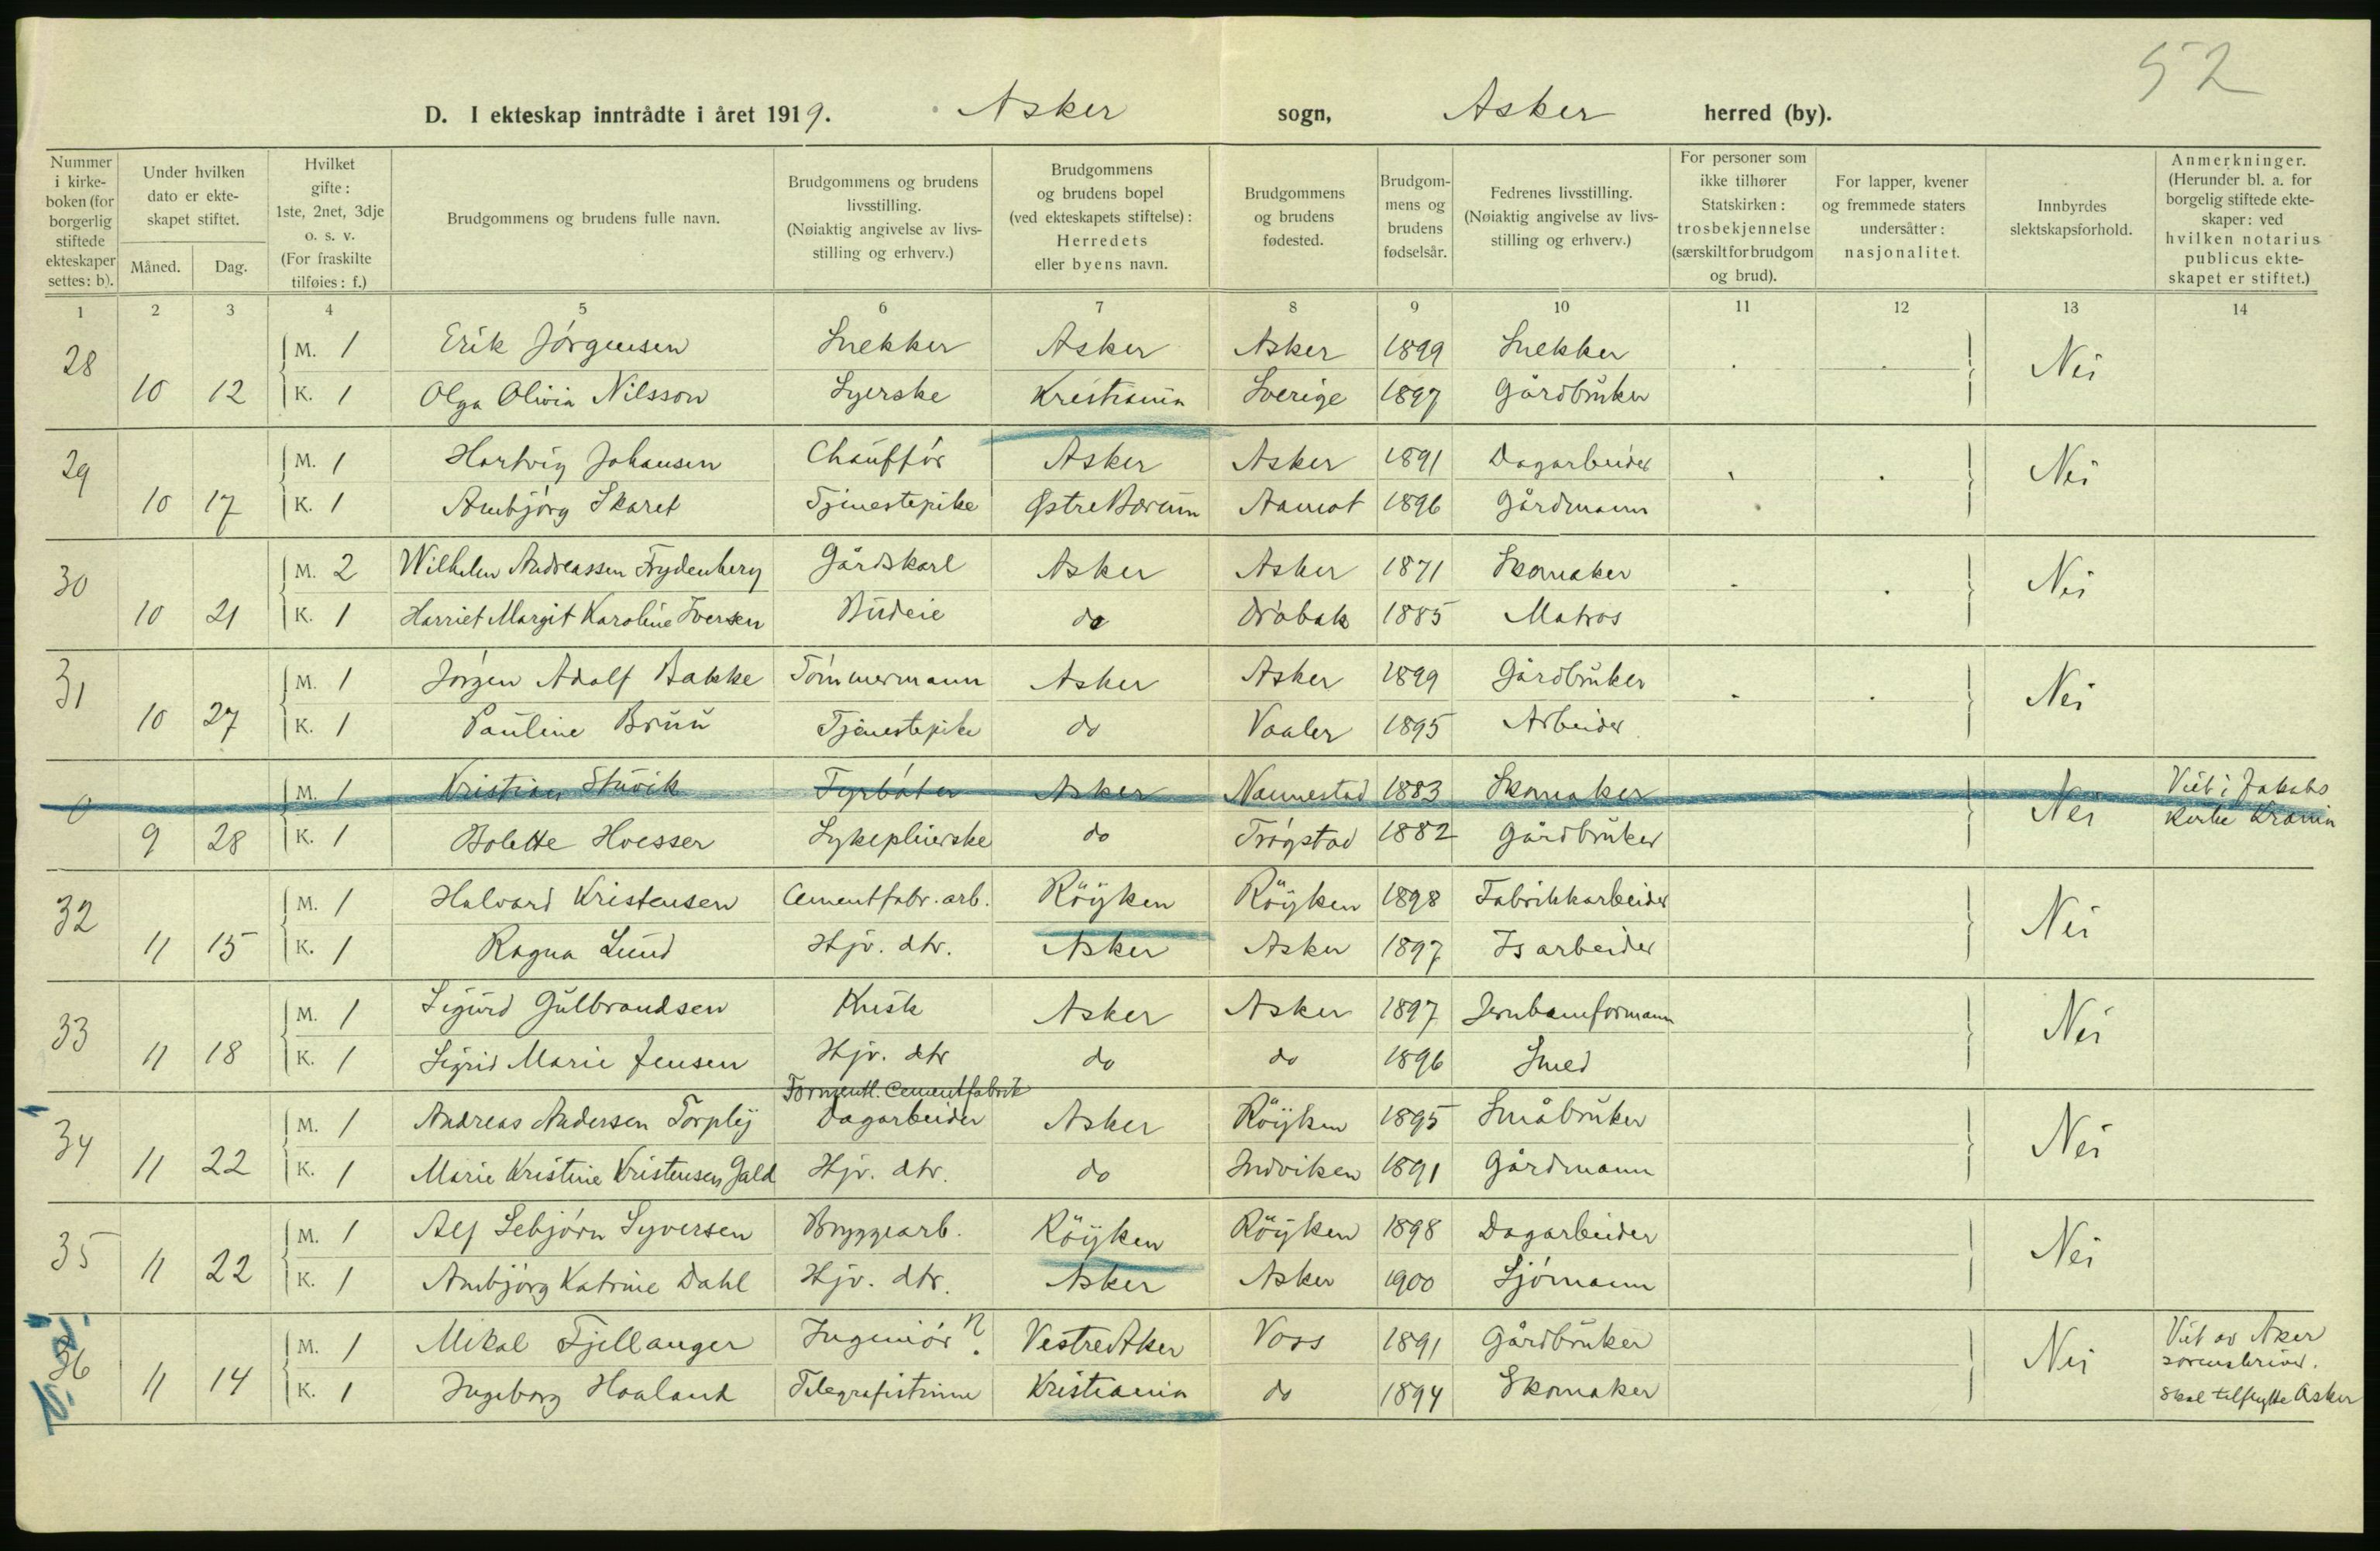 52
D. I ekteskap inntrådte i året 1919. Asker sogn, Asker herred (by).
Nummer i kirke-boken (for borgerlig stiftede ekteskaper settes: b).
Under hvilken dato er ekte-skapet stiftet.
Måned. Dag.
Hvilket gifte: 1ste, 2net, 3dje o. s. v. (For fraskilte tilføies: f.)
Brudgommens og brudens fulle navn.
Brudgommens og brudens livsstilling. (Nøiaktig angivelse av livs-stilling og erhverv.)
Brudgommens og brudens bopel (ved ekteskapets stiftelse): Herredets eller byens navn.
Brudgommens og brudens fødested.
Brudgom-mens og brudens fødselsår.
Fedrenes livsstilling. (Nøiaktig angivelse av livs-stilling og erhverv.)
For personer som ikke tilhører Statskirken: trosbekjennelse (særskilt for brudgom og brud).
For lapper, kvener og fremmede staters undersåtter: nasjonalitet.
Innbyrdes slektskapsforhold.
Anmerkninger. (Herunder bl. a. for borgelig stiftede ekte-skaper: ved hvilken notarius publicus ekte-skapet er stiftet.)
1 2 3 4 5 6 7 8 9 10 11 12 13 14
28 M. 1 Erik Jørgensen Snekker Asker Asker 1899 Snekker Nei
10 12 K. 1 Olga Olivia Nilsson Syerske Kristiania Sverige 1897 Gårdbruker
29 M. 1 Hartvig Johansen Chauffór Asker Asker 1891 Dagarbeider Nei
10 17 K. 1 Ambjørg Skaret Tjenestepike Østre Bærum Aamot 1896 Gårdmann
30 M. 2 Wilhelm Andreassen Frydenberg Gårdskarl Asker Asker 1871 Skomaker Nei
10 21 K. 1 Harriet Margit Karoline Iversen Budeie do Drøbak 1885 Matros
31 M. 1 Jørgen Adolf Bakke Tømmermann Asker Asker 1899 Gårdbruker Nei
10 27 K. 1 Pauline Bruu Tjenestepike do Vaaler 1895 Arbeider
0 M. 1 Kristian Fyrbøter Asker Nannestad 1883 Skomaker Nei Viet i Jakobs
9 28 K. 1 Bolette Hoesser Sykepleierske do Trøgstad 1882 Gårdbruker kirke Krania
32 M. 1 Halvard Kristensen Cementfabr. arb. Röyken Röyken 1898 Fabrikkarbeider Nei
11 15 K. 1 Ragna Lund Hjv. dtr. Asker Asker 1897 Isarbeider
33 M. 1 Sigurd Gulbrandsen Kusk Asker Asker 1897 Jernbaneformann Nei
11 18 K. 1 Sigrid Marie Jensen Hjv. dtr do do 1896 Smed
Cementfabrik
34 M. 1 Andreas Andersen Torplij Dagarbeider Asker Röyken 1895 Småbruker Nei
11 22 K. 1 Marie Kristine Kristensen Gald Hjv. dtr. do Indviken 1891 Gårdmann
35 M. 1 Alf Sebjørn Syversen Bryggearb. Röyken Röyken 1898 Dagarbeider Nei
11 22 K. 1 Ambjørg Katrine Dahl Hjv. dtr. Asker Asker 1900 Sjømann
36 M. 1 Mikal Fjellanger Ingeniør ? Vestre Aker Voss 1891 Gårdbruker Nei Viet av Aker
sorenskriver.
11 14 K. 1 Ingeborg Haaland Telegrafistinne Kristiania do 1894 Skomaker Skal tilflytte Asker